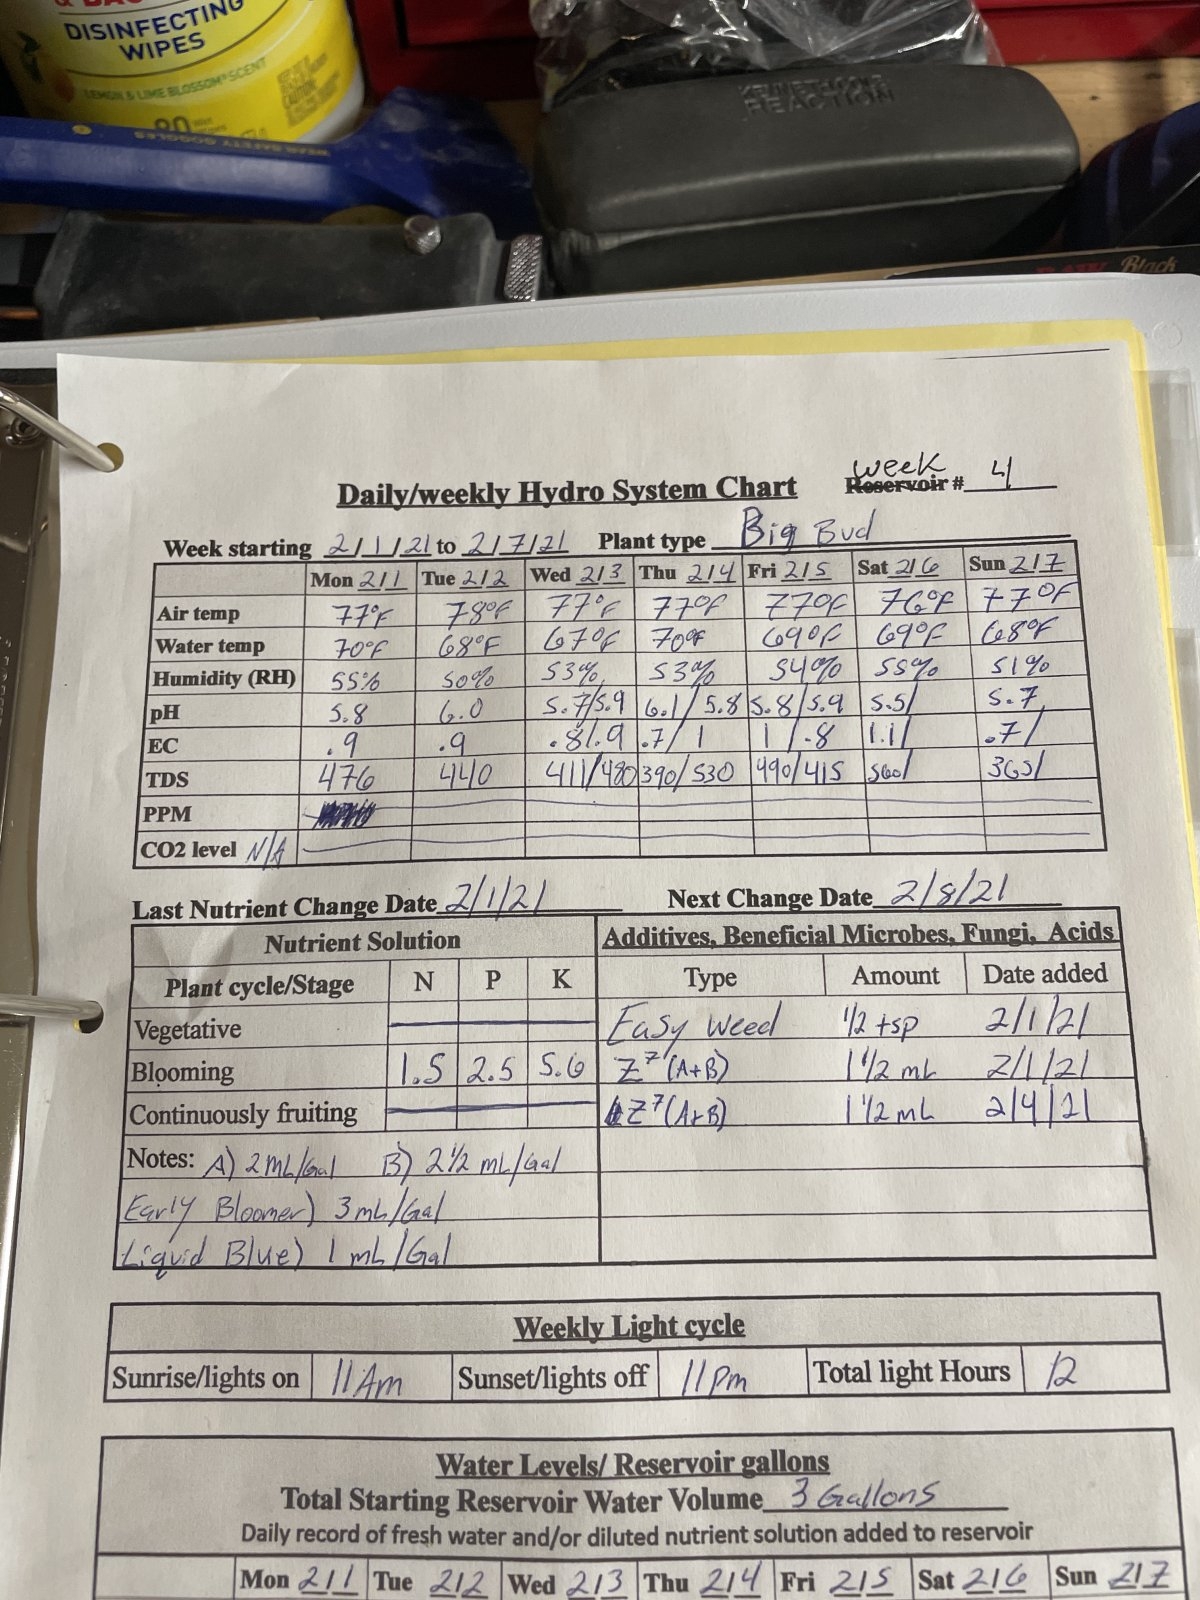 & BAC
DISINFECTING
WIPES
LEMON & LIME BLOSSOM SCENT
WEAR SAFETY GOGGLES
REACTION
Black
Daily/weekly Hydro System Chart week Reservoir # 4
Week starting 2/1/21 to 2/7/21 Plant type Big Bud
Mon 2/1 Tue 2/2 Wed 2/3 Thu 2/4 Fri 2/5 Sat 2/6 Sun 2/7
Air temp 77°F 78°F 77°F 77°F 77°F 76°F 77°F
Water temp 70°F 68°F 67°F 70°F 69°F 69°F 68°F
Humidity (RH) 55% 50% 53% 53% 54% 55% 51%
pH 5.8 6.0 5.7/5.9 6.1/5.8 5.8/5.9 5.5/ 5.7
EC .9 .9 .8/.9 .7/1 1/.8 1.1/ .7/
TDS 476 440 411/480 390/530 490/415 560/ 363/
PPM
CO2 level N/A
Last Nutrient Change Date 2/1/21 Next Change Date 2/8/21
Nutrient Solution Additives, Beneficial Microbes, Fungi, Acids
Plant cycle/Stage N P K Type Amount Date added
Vegetative Easy Weed 1/2 tsp 2/1/21
Blooming 1.5 2.5 5.6 Z7 (A+B) 1 1/2 mL 2/1/21
Continuously fruiting Z7 (A+B) 1 1/2 mL 2/4/21
Notes: A) 2mL/Gal B) 2 1/2 mL/Gal
Early Bloomer) 3mL/Gal
Liquid Blue) 1 mL/Gal
Weekly Light cycle
Sunrise/lights on 11Am Sunset/lights off 11pm Total light Hours 12
Water Levels/ Reservoir gallons
Total Starting Reservoir Water Volume 3 Gallons
Daily record of fresh water and/or diluted nutrient solution added to reservoir
Mon 2/1 Tue 2/2 Wed 2/3 Thu 2/4 Fri 2/5 Sat 2/6 Sun 2/7